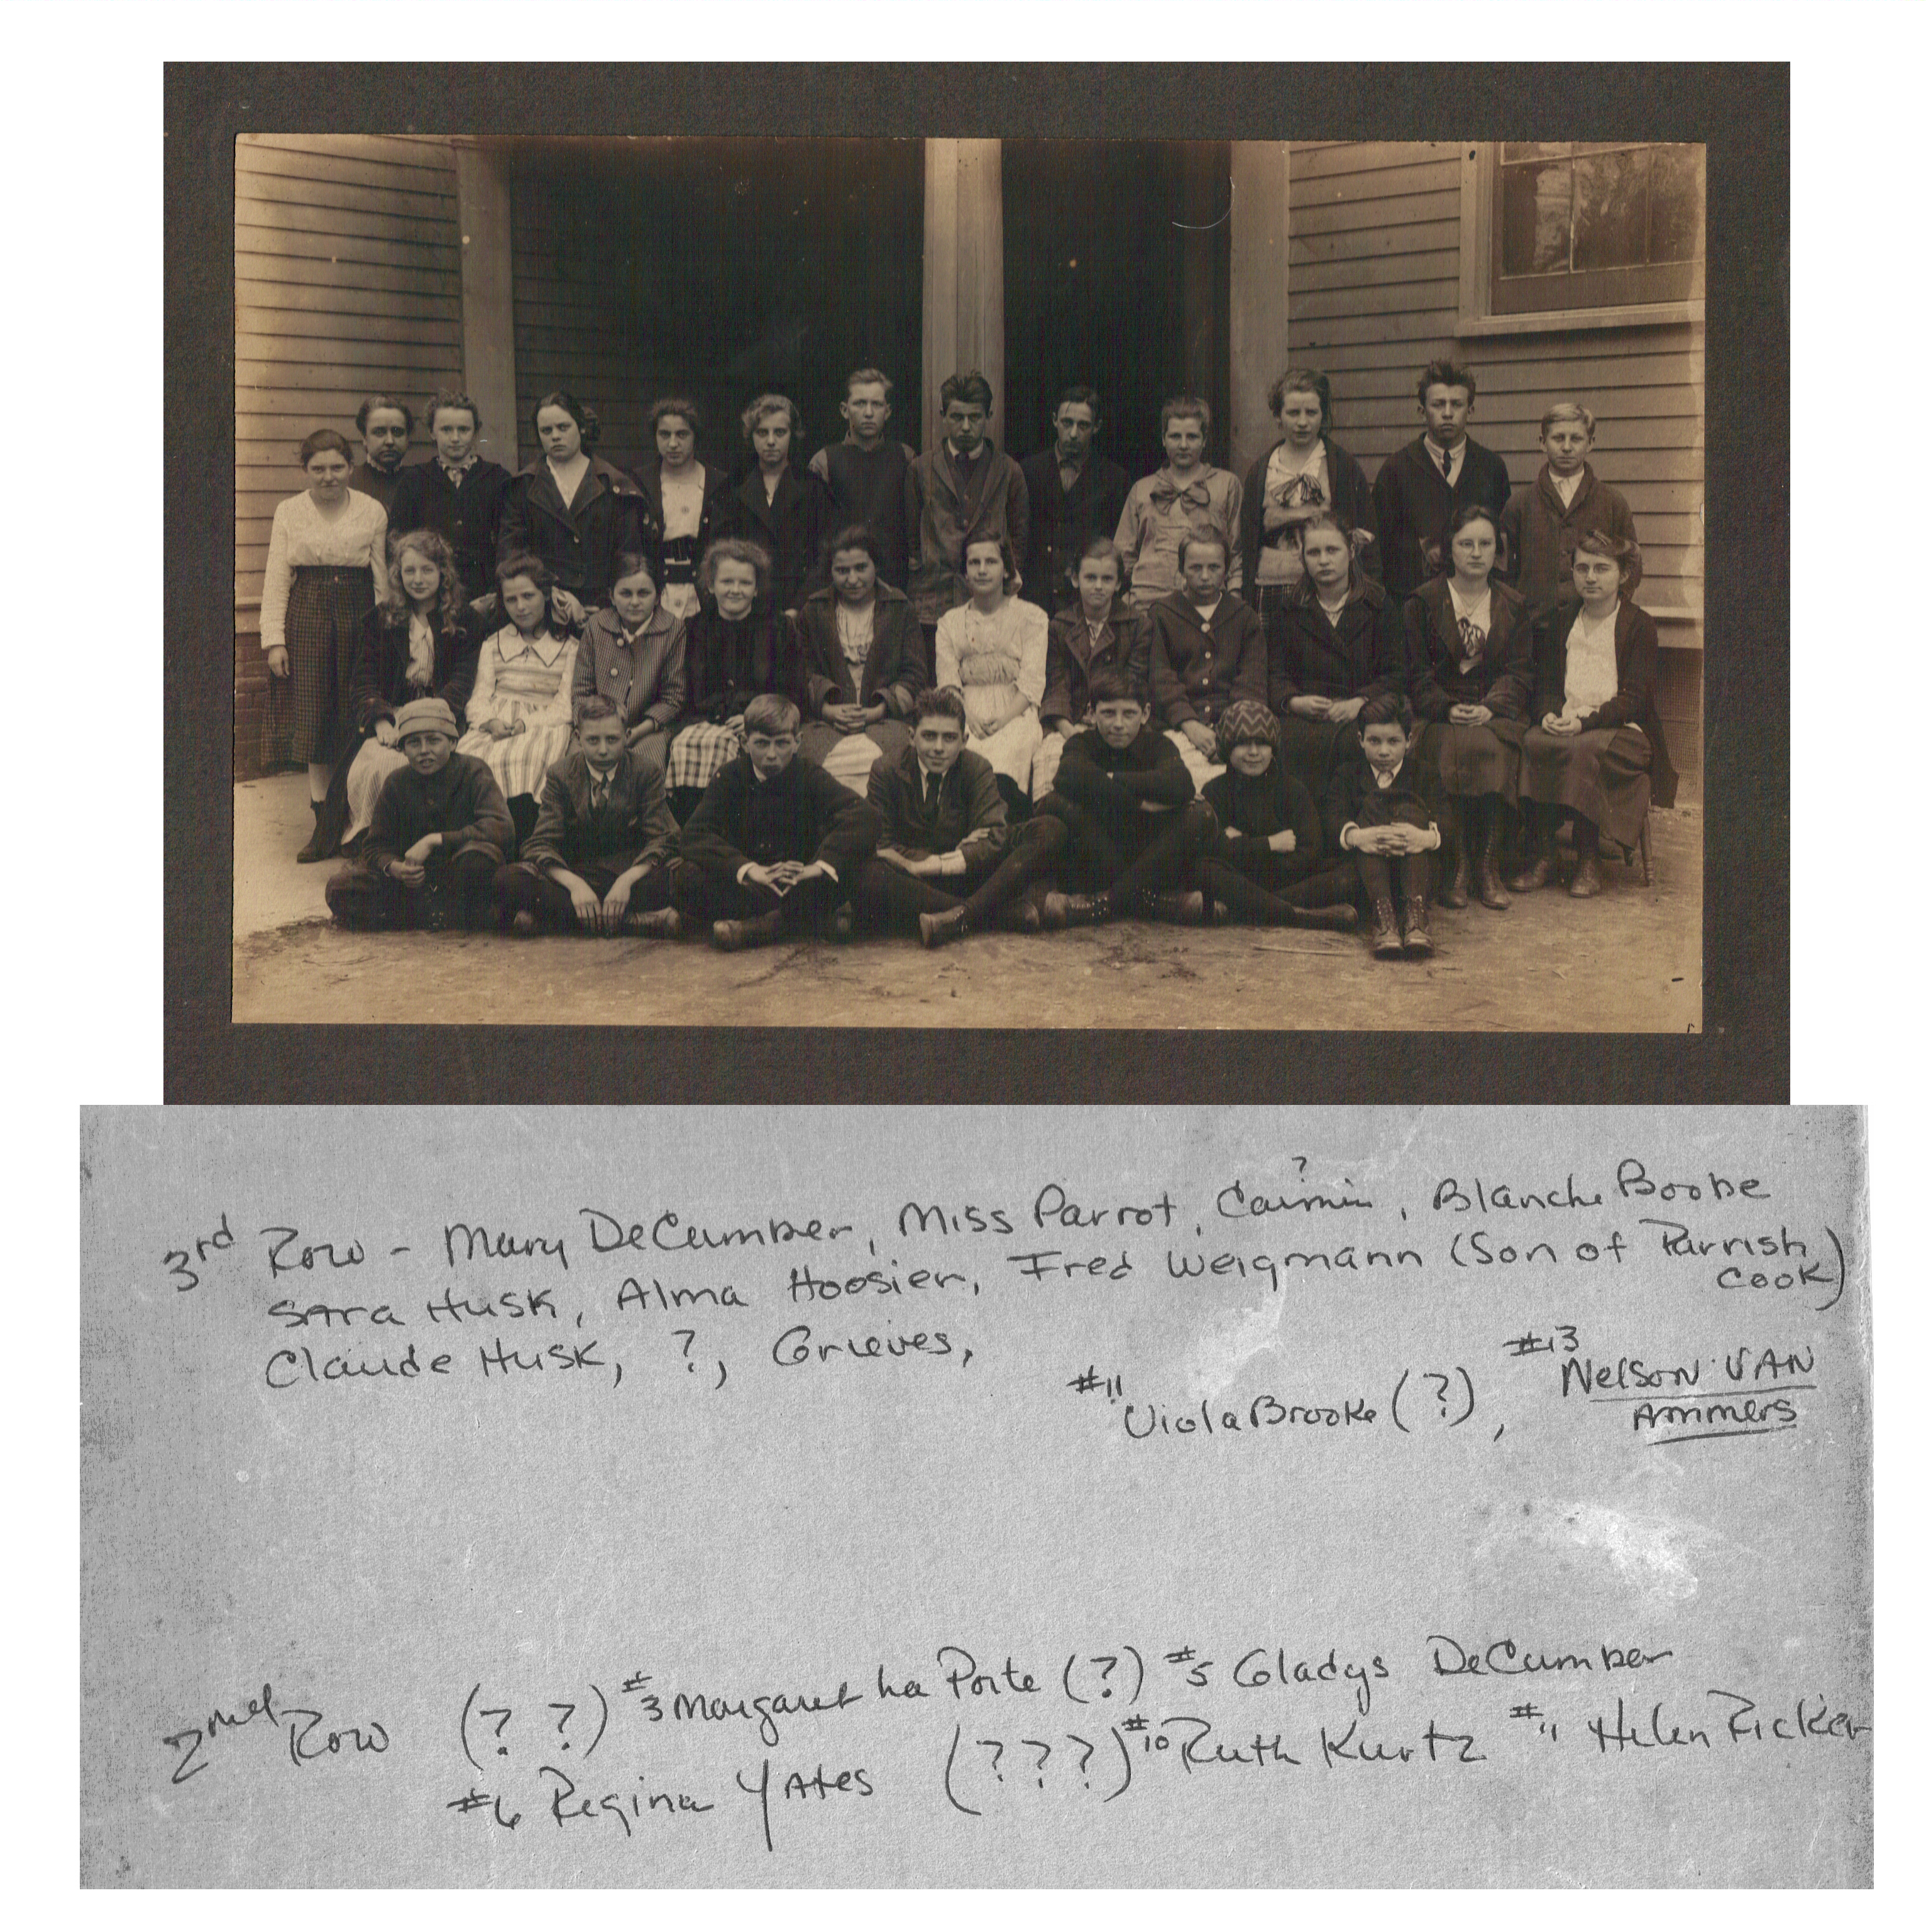 ?
3rd Row - Mary DeCumber, Miss Parrot, Caimin, Blanche Boobe
Sara Husk, Alma Hoosier, Fred Weigmann (Son of Parrish
Cook)
Claude Husk, ?, Grieves,
#11 Viola Brooke (?), #13 Nelson VAN
Ammers
2nd Row (? ?) #3 Margaret La Porte (?) #5 Gladys DeCumber
#6 Regina Yates (? ? ?) #10 Ruth Kurtz #11 Helen Ricker